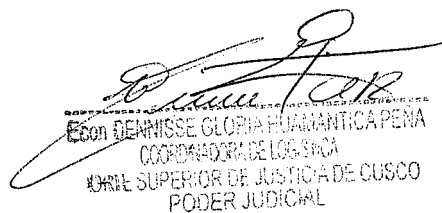 Econ DENNISSE GLORIA HUAMANTICA PEÑA
COORDINADORA DE LOGISTICA
CORTE SUPERIOR DE JUSTICIA DE CUSCO
PODER JUDICIAL